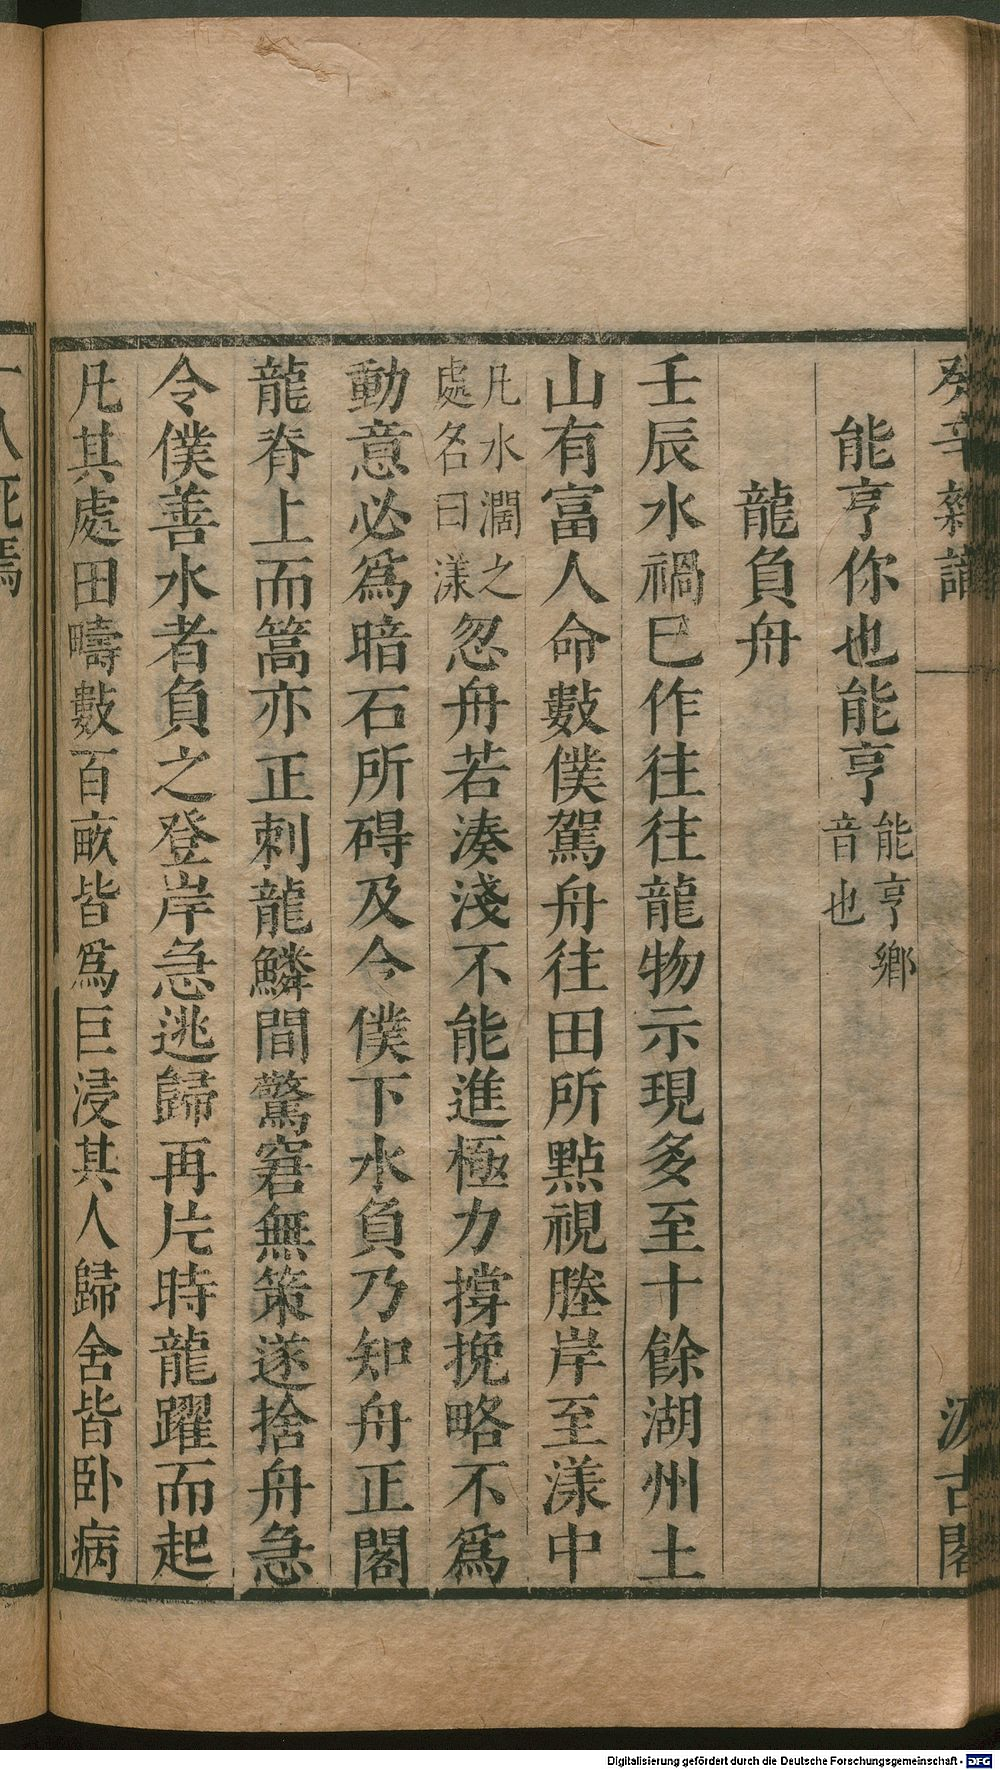 癸辛雜識
汲古閣
能亨你也能亨能亨鄉音也
龍負舟
壬辰水禍已作往往龍物示現多至十餘湖州土
山有富人命數僕駕舟往田所點視塍岸至漾中
凡水濶之處名曰漾忽舟若湊淺不能進極力撐挽略不爲
動意必爲暗石所碍及令僕下水負乃知舟正閣
龍脊上而篙亦正刺龍鱗間驚窘無策遂捨舟急
令僕善水者負之登岸急逃歸再片時龍躍而起
凡其處田疇數百畝皆爲巨浸其人歸舍皆卧病
一人死焉
Digitalisierung gefördert durch die Deutsche Forschungsgemeinschaft - DFG